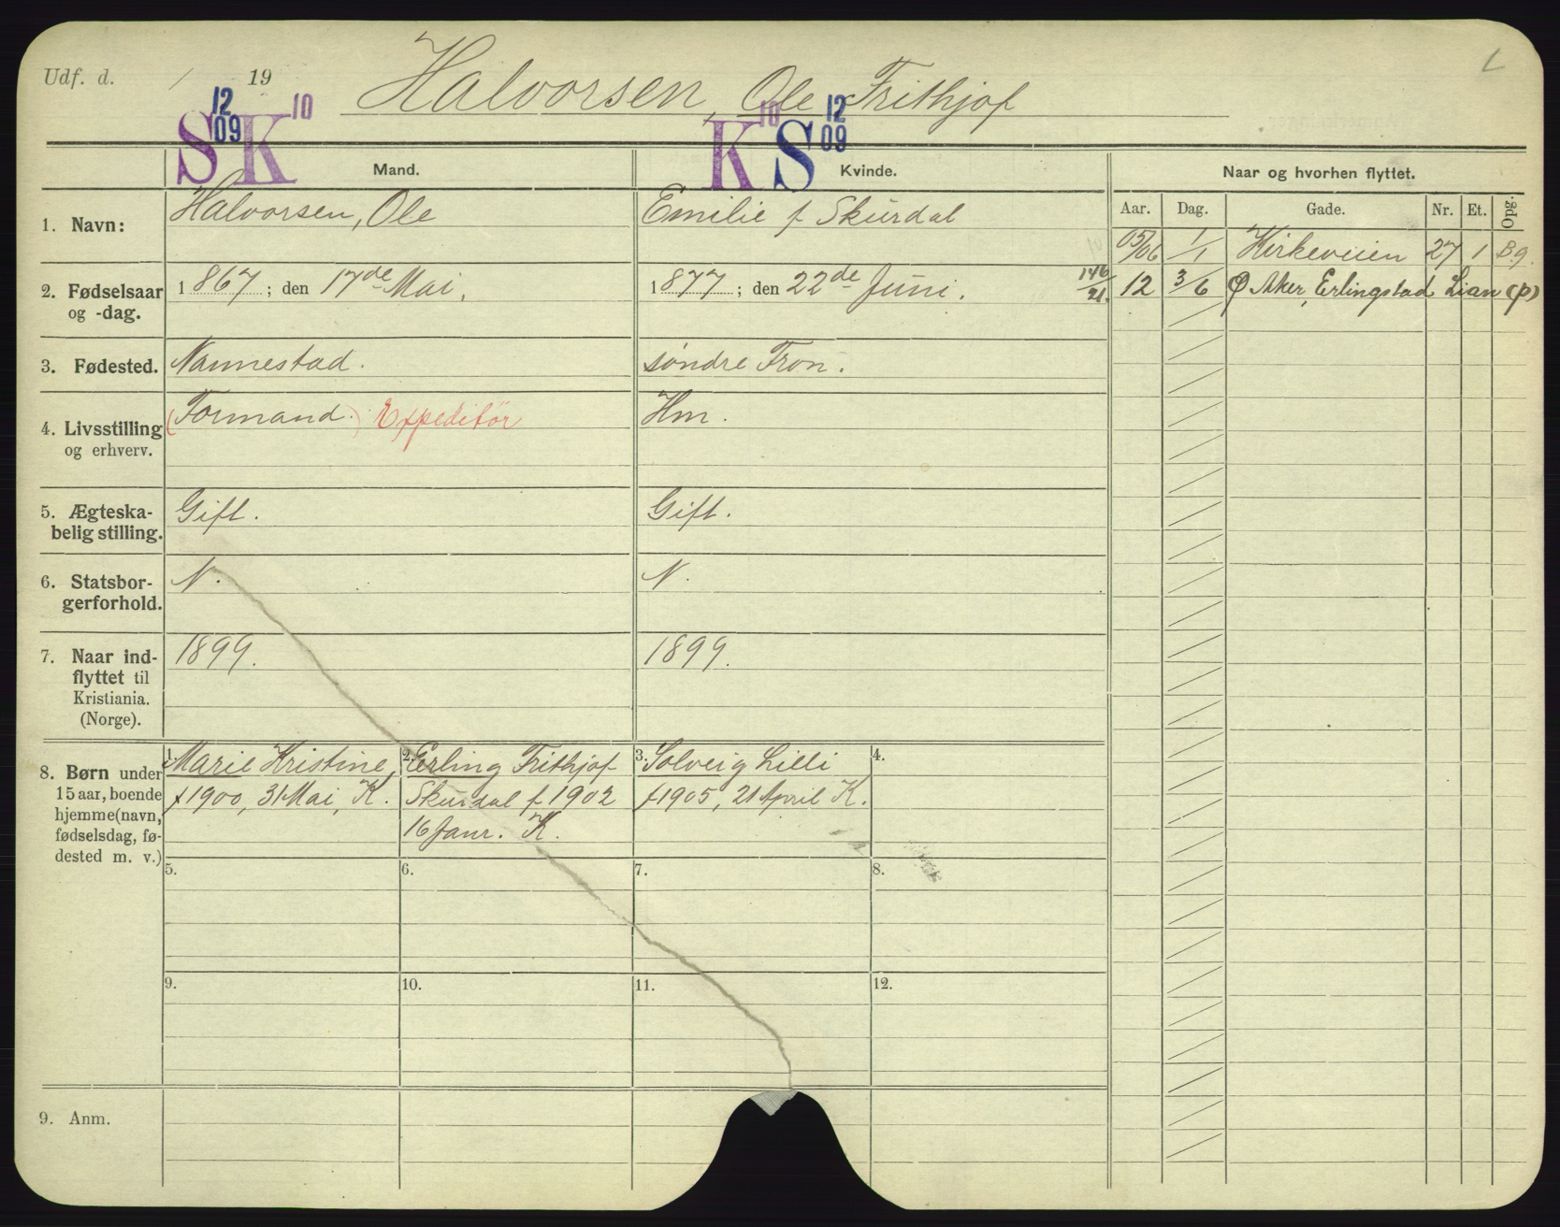 Udf. d. / 19 Halvorsen, Ole Frithjof
S 12 09 K 10 K 10 S 12 09
Mand. Kvinde. Naar og hvorhen flyttet.
Aar. Dag. Gade. Nr. Et. Opg.
1. Navn: Halvorsen, Ole Emilie f Skurdal
05/06 1/1 Kirkeveien 27 1 B.g.
2. Fødselsaar og -dag. 1867; den 17de Mai. 1877; den 22de Juni. 146/21.
12 3/6 Ø Aker, Erlingstad Lian (P)
3. Fødested. Nannestad. søndre Fron.
4. Livsstilling og erhverv. (Formand.) Expeditør Hm.
5. Ægteska-
belig stilling. Gift. Gift.
6. Statsbor-
gerforhold. N. N.
7. Naar ind-
flyttet til
Kristiania.
(Norge). 1899. 1899.
8. Børn under
15 aar, boende
hjemme (navn,
fødselsdag, fø-
dested m. v.)
1. Marie Kristine,
f 1900, 31 Mai, K.
2. Erling Frithjof
Skurdal f 1902
16 Janr. K.
3. Solveig Lilli
f 1905, 21 April K.
4.
5. 6. 7. 8.
9. 10. 11. 12.
9. Anm.